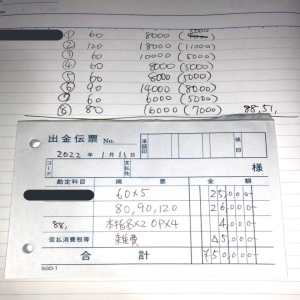 5000
① 60 8000 (3000)
② 120 18000 (11000)
③ 60 10000 (5000)
④ 60 8000 (5000)
⑤ 60 8000 (5000)
⑥ 90 14000 (8000)
⑦ 60 6000 (5000)
⑧ 80 16000 (7000) 88,51,
出金伝票 No. 承認印 係印
2022年1月11日
コード 支払先 様
勘定科目 摘要 金額
60×5 25,000-
80,90,120 26,000-
88, 本指名×2 OP×4 4,000-
仮払消費税等 雑費 △5,000-
合計 ¥50,000-
SGD-1